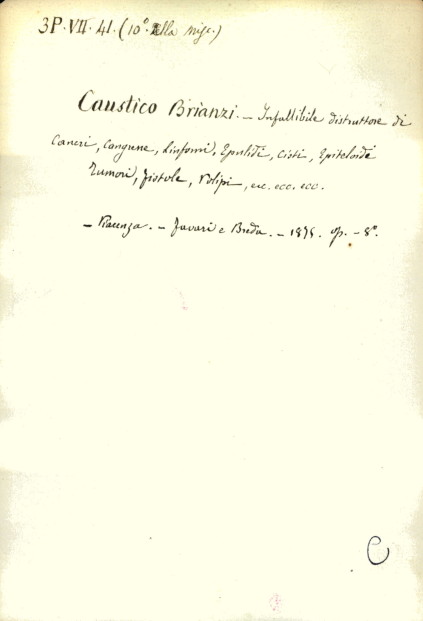 3P. VII. 41. (10° alla misc.)
Caustico Brianzi. — Infallibile distruttore di
Cancri, Cangrene, Linfomi, Epulidi, Cisti, Epiteloidi
Tumori, Fistole, Polipi, ecc. ecc. ecc.
— Piacenza. — Favari e Breda. — 1875. op. — 8°.
C